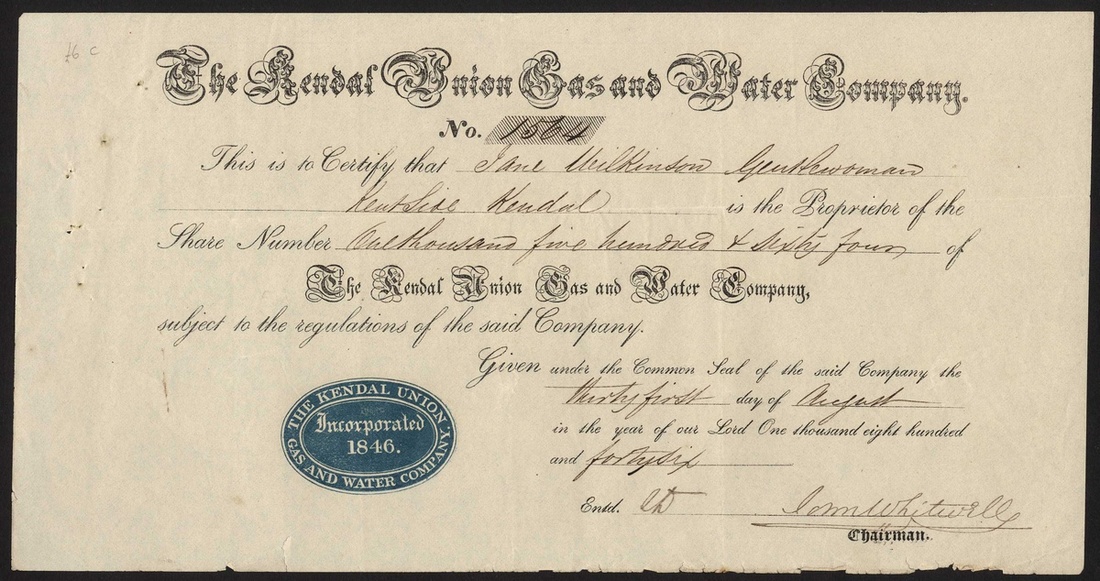 £6 c
The Kendal Union Gas and Water Company.
No. 1564
This is to Certify that Jane Wilkinson Gentlewoman
Kent Side Kendal is the Proprietor of the
Share Number One thousand five hundred & sixty four of
The Kendal Union Gas and Water Company,
subject to the regulations of the said Company.
Given under the Common Seal of the said Company the
thirty first day of August
in the year of our Lord One thousand eight hundred
and forty six
THE KENDAL UNION
Incorporated
1846.
GAS AND WATER COMPANY.
Entd.
John Whitwell
Chairman.